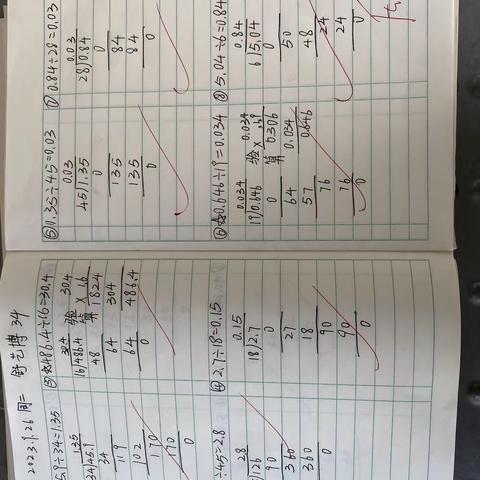 2023.9.26 周二 舒艺博 34
5.9÷34=1.35
1.35
34)45.9
34
119
102
170
170
0
③☆486.4÷16=30.4
30.4
16)486.4
48
64
64
0
验算
30.4
× 1.6
1824
304
486.4
÷45=2.8
2.8
)126
90
360
360
0
④2.7÷18=0.15
0.15
18)2.7
0
27
18
90
90
0
⑤1.35÷45=0.03
0.03
45)1.35
0
135
135
0
⑥☆0.646÷19=0.034
0.034
19)0.646
0
64
57
76
76
0
验算
0.034
× .19
0.306
0.034
0.646
⑦0.84÷28=0.03
0.03
28)0.84
0
84
84
0
⑧5.04÷6=0.84
0.84
6)5.04
0
50
48
24
24
0